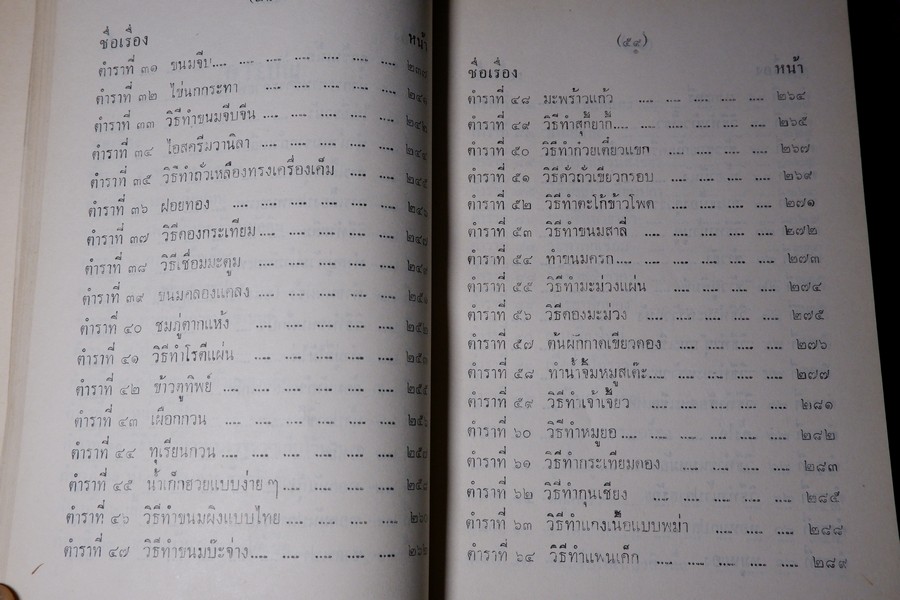 ชื่อเรื่อง หน้า
ตำราที่ ๓๑ ขนมจีบ.... .... .... .... .... .... ๒๓๘
ตำราที่ ๓๒ ไข่นกกระทา .... .... .... .... .... ๒๔๑
ตำราที่ ๓๓ วิธีทำขนมจีบจีน .... .... .... .... ๒๔๒
ตำราที่ ๓๔ ไอสครีมวานิลา .... .... .... .... ๒๔๔
ตำราที่ ๓๕ วิธีทำถั่วเหลืองทรงเครื่องเค็ม .... .... ๒๔๕
ตำราที่ ๓๖ ฝอยทอง .... .... .... .... .... ๒๔๖
ตำราที่ ๓๗ วิธีดองกระเทียม .... .... .... .... ๒๔๘
ตำราที่ ๓๘ วิธีเชื่อมมะตูม .... .... .... .... .... ๒๔๙
ตำราที่ ๓๙ ขนมคลองแคลง .... .... .... .... .... ๒๕๑
ตำราที่ ๔๐ ชมภู่ตากแห้ง .... .... .... .... .... ๒๕๒
ตำราที่ ๔๑ วิธีทำโรตีแผ่น .... .... .... .... .... ๒๕๓
ตำราที่ ๔๒ ข้าวตูทิพย์ .... .... .... .... .... .... ๒๕๕
ตำราที่ ๔๓ เผือกกวน .... .... .... .... .... ๒๕๖
ตำราที่ ๔๔ ทุเรียนกวน .... .... .... .... .... ๒๕๘
ตำราที่ ๔๕ น้ำเก็กฮวยแบบง่าย ๆ .... .... .... .... ๒๕๘
ตำราที่ ๔๖ วิธีทำขนมผิงแบบไทย .... .... .... .... ๒๖๐
ตำราที่ ๔๗ วิธีทำขนมบ๊ะจ่าง.... .... .... .... .... ๒๖๒
(๕๙)
ชื่อเรื่อง หน้า
ตำราที่ ๔๘ มะพร้าวแก้ว .... .... .... .... .... ๒๖๔
ตำราที่ ๔๙ วิธีทำสุกี้ยากี้.... .... .... .... .... ๒๖๕
ตำราที่ ๕๐ วิธีทำก๋วยเตี๋ยวแขก .... .... .... .... ๒๖๗
ตำราที่ ๕๑ วิธีคั่วถั่วเขียวกรอบ .... .... .... .... ๒๖๙
ตำราที่ ๕๒ วิธีทำตะโก้ข้าวโพด .... .... .... .... ๒๗๑
ตำราที่ ๕๓ วิธีทำขนมสาลี่ .... .... .... .... .... ๒๗๒
ตำราที่ ๕๔ ทำขนมครก .... .... .... .... .... ๒๗๓
ตำราที่ ๕๕ วิธีทำมะม่วงแผ่น .... .... .... .... ๒๗๔
ตำราที่ ๕๖ วิธีดองมะม่วง .... .... .... .... .... ๒๗๕
ตำราที่ ๕๗ ต้นผักกาดเขียวดอง .... .... .... .... ๒๗๖
ตำราที่ ๕๘ ทำน้ำจิ้มหมูสเต๊ะ.... .... .... .... .... ๒๗๗
ตำราที่ ๕๙ วิธีทำเจ้าเจี้ยว .... .... .... .... .... ๒๘๑
ตำราที่ ๖๐ วิธีทำหมูยอ .... .... .... .... .... .... ๒๘๒
ตำราที่ ๖๑ วิธีทำกระเทียมดอง .... .... .... .... ๒๘๓
ตำราที่ ๖๒ วิธีทำกุนเชียง .... .... .... .... .... ๒๘๕
ตำราที่ ๖๓ วิธีทำแกงเนื้อแบบพม่า .... .... .... .... ๒๘๘
ตำราที่ ๖๔ วิธีทำแพนเค็ก .... .... .... .... .... ๒๘๙